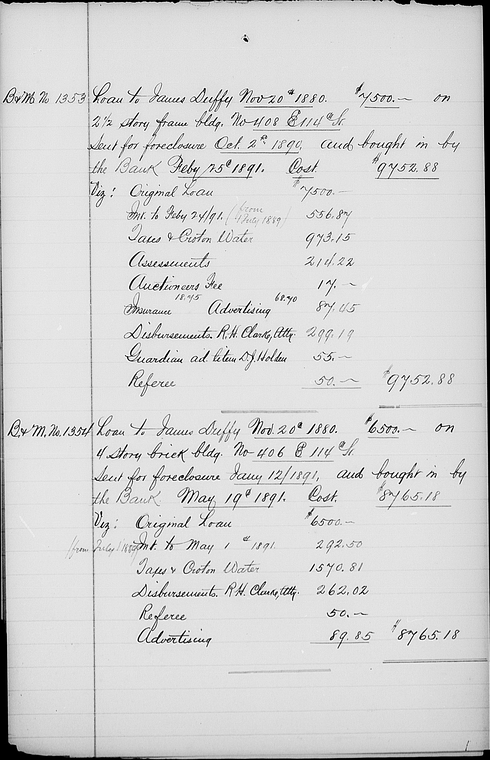 B & M. No 1353 Loan to James Duffy Nov 20th 1880. $7500.— on
2 1/2 story frame bldg. No 408 E 114th St.
Sent for foreclosure Oct. 2d 1890, and bought in by
the Bank Feby 25th 1891. Cost. $9752.88
Viz: Original Loan $7500.—
Int. to Feby 24/91. (from 1 July 1889) 556.87
Taxes & Croton Water 973.15
Assessments 214.22
Auctioneers Fee 17.—
Insurance 18.75 Advertising 68.70 87.45
Disbursements. R.H. Clarke, Atty. 299.19
Guardian ad. litem D.J. Holden 55.—
Referee 50.— $9752.88
B. & M. No. 1354 Loan to James Duffy Nov. 20th 1880. $6500.— on
4 story brick bldg. No 406 E 114th St.
Sent for foreclosure Jany 12/1891, and bought in by
the Bank May 19th 1891. Cost $8765.18
Viz: Original Loan $6500.—
(from July 1 1890) Int. to May 1st 1891. 292.50
Taxes & Croton Water 1570.81
Disbursements. R.H. Clarke, Atty. 262.02
Referee 50.—
Advertising 89.85 $8765.18
1